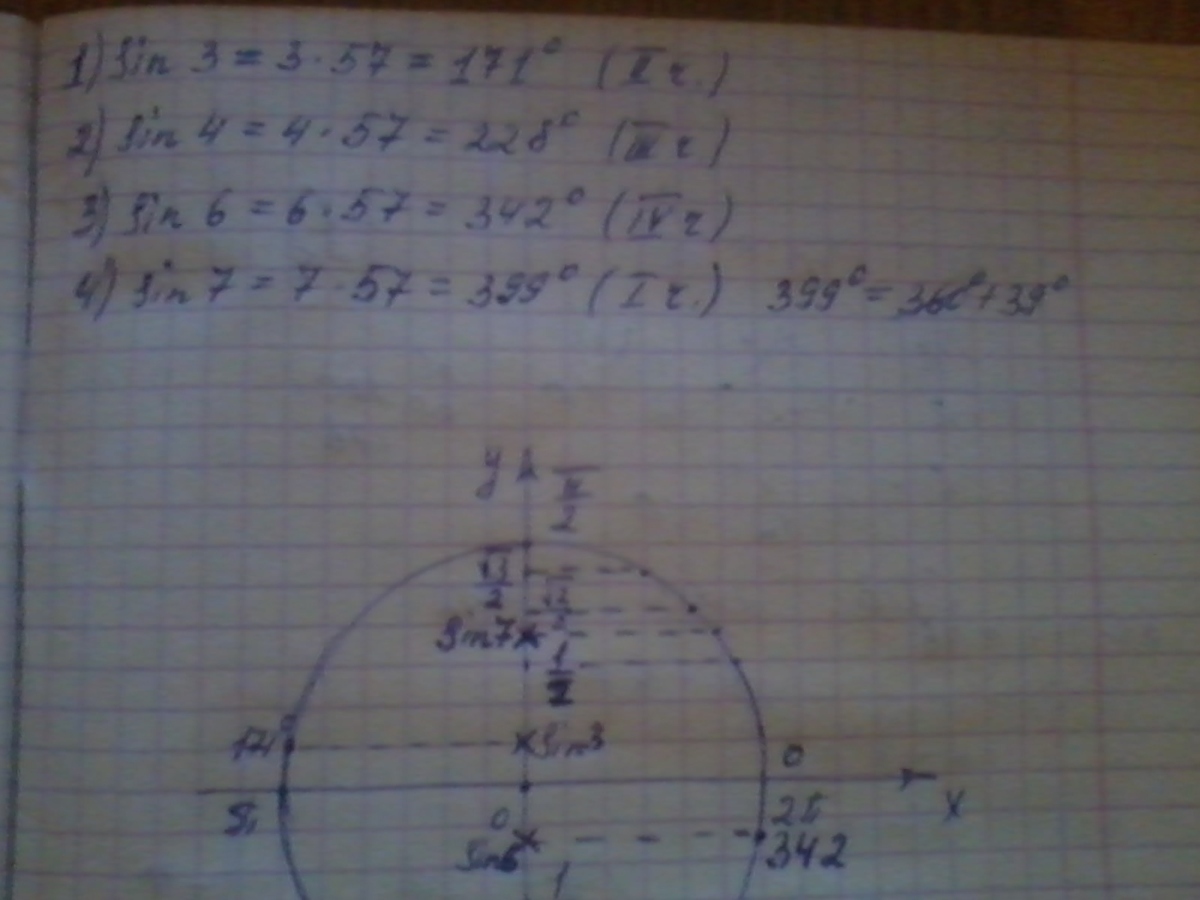 1) Sin 3 = 3 · 57 = 171° (II ч.)
2) Sin 4 = 4 · 57 = 228° (III ч)
3) Sin 6 = 6 · 57 = 342° (IV ч)
4) Sin 7 = 7 · 57 = 399° (I ч.) 399° = 360° + 39°
y π/2
√3/2 √2/2
Sin 7
1/2
171° Sin 3
0
π 2π
x
0
Sin 6 342
1